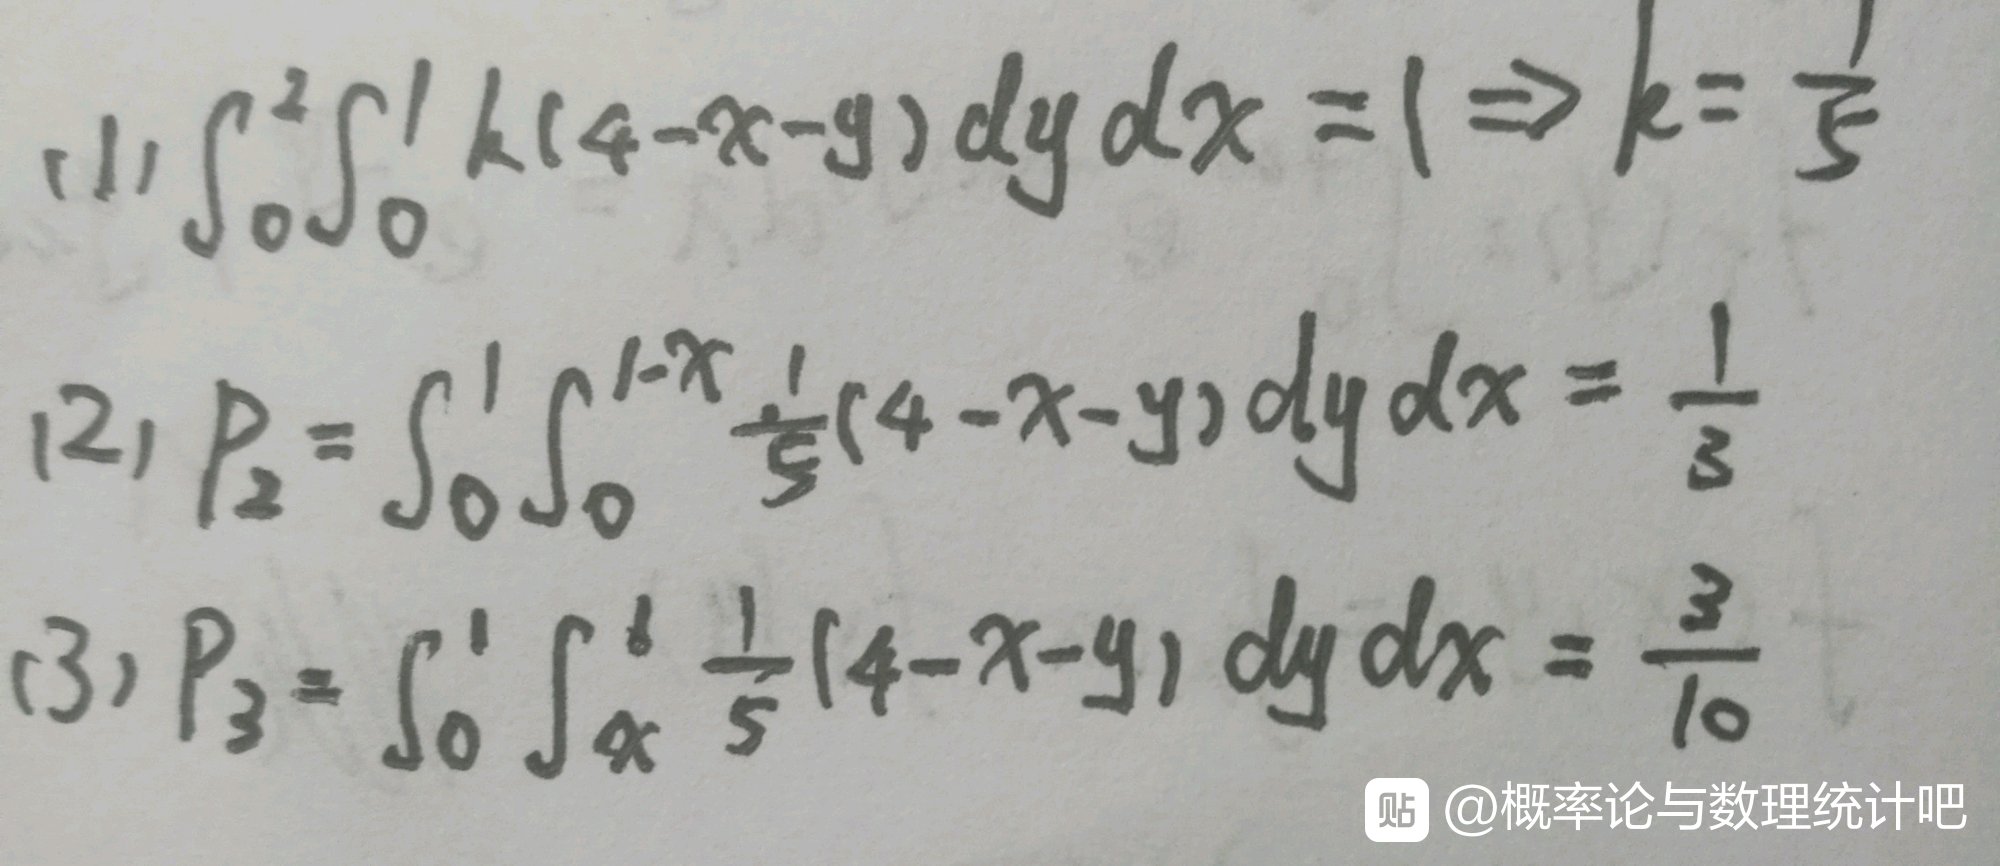 (1) ∫₀² ∫₀¹ k(4-x-y) dy dx = 1 ⇒ k = 1/5
(2) P₂ = ∫₀¹ ∫₀^(1-x) 1/5 (4-x-y) dy dx = 1/3
(3) P₃ = ∫₀¹ ∫ₓ¹ 1/5 (4-x-y) dy dx = 3/10
贴 @概率论与数理统计吧